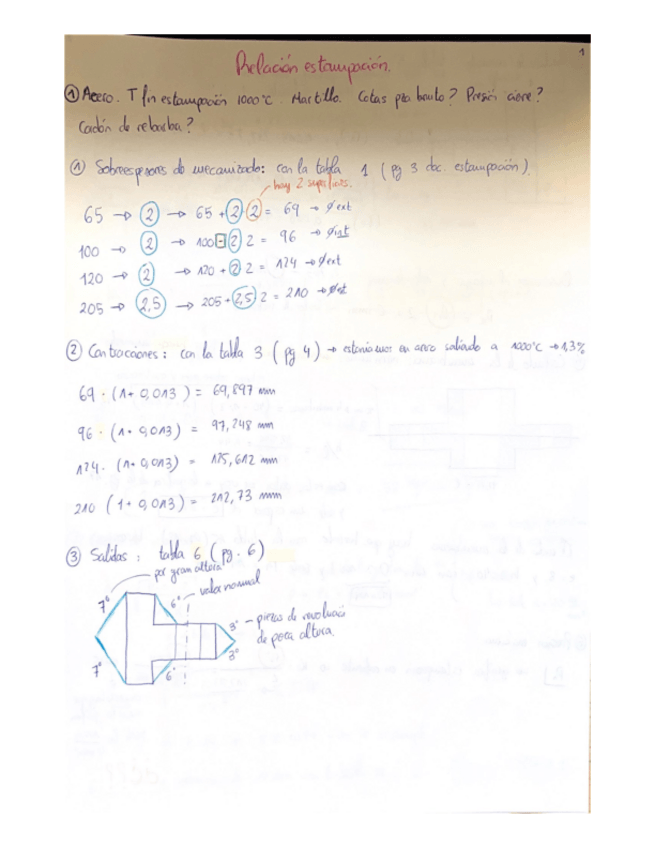 1
Relación estampación.
① Acero. T fin estampación 1000°C. Martillo. Cotas pza bruto? Presión cierre?
Cordón de rebarba?
① Sobreespesores de mecanizado: con la tabla 1 (pg 3 doc. estampación).
hay 2 superficies.
65 → 2 → 65 + 2·2 = 69 → ø ext
100 → 2 → 100 - 2 2 = 96 → ø int
120 → 2 → 120 + 2 2 = 124 → ø ext
205 → 2,5 → 205 + 2,5 2 = 210 → ø ext
② Contracciones: con la tabla 3 (pg 4) → estaríamos en acero saliendo a 1000°C → 1,3%
69 · (1 + 0,013) = 69,897 mm
96 · (1 + 0,013) = 97,248 mm
124 · (1 + 0,013) = 125,612 mm
210 (1 + 0,013) = 212,73 mm
③ Salidas: tabla 6 (pg. 6)
por gran altura
valor normal
7° 6°
3° - piezas de revolución
de poca altura.
3°
7° 6°